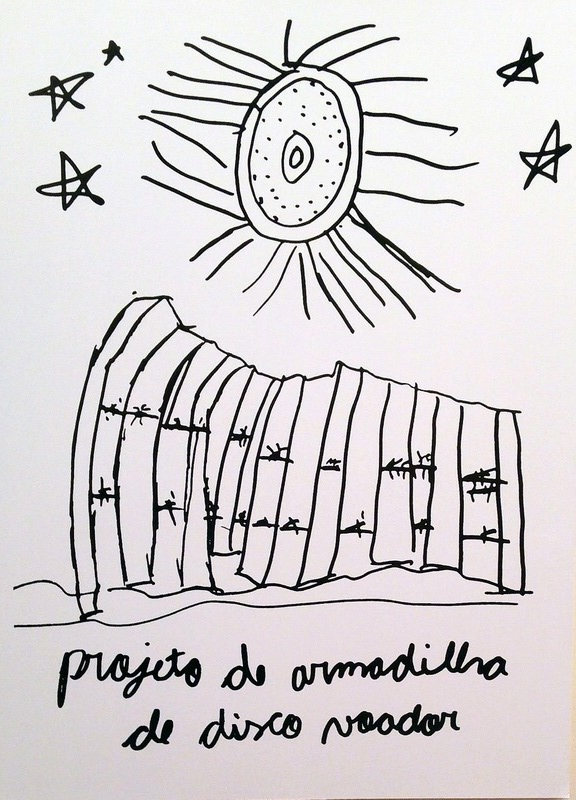 projeto de armadilha
de disco voador